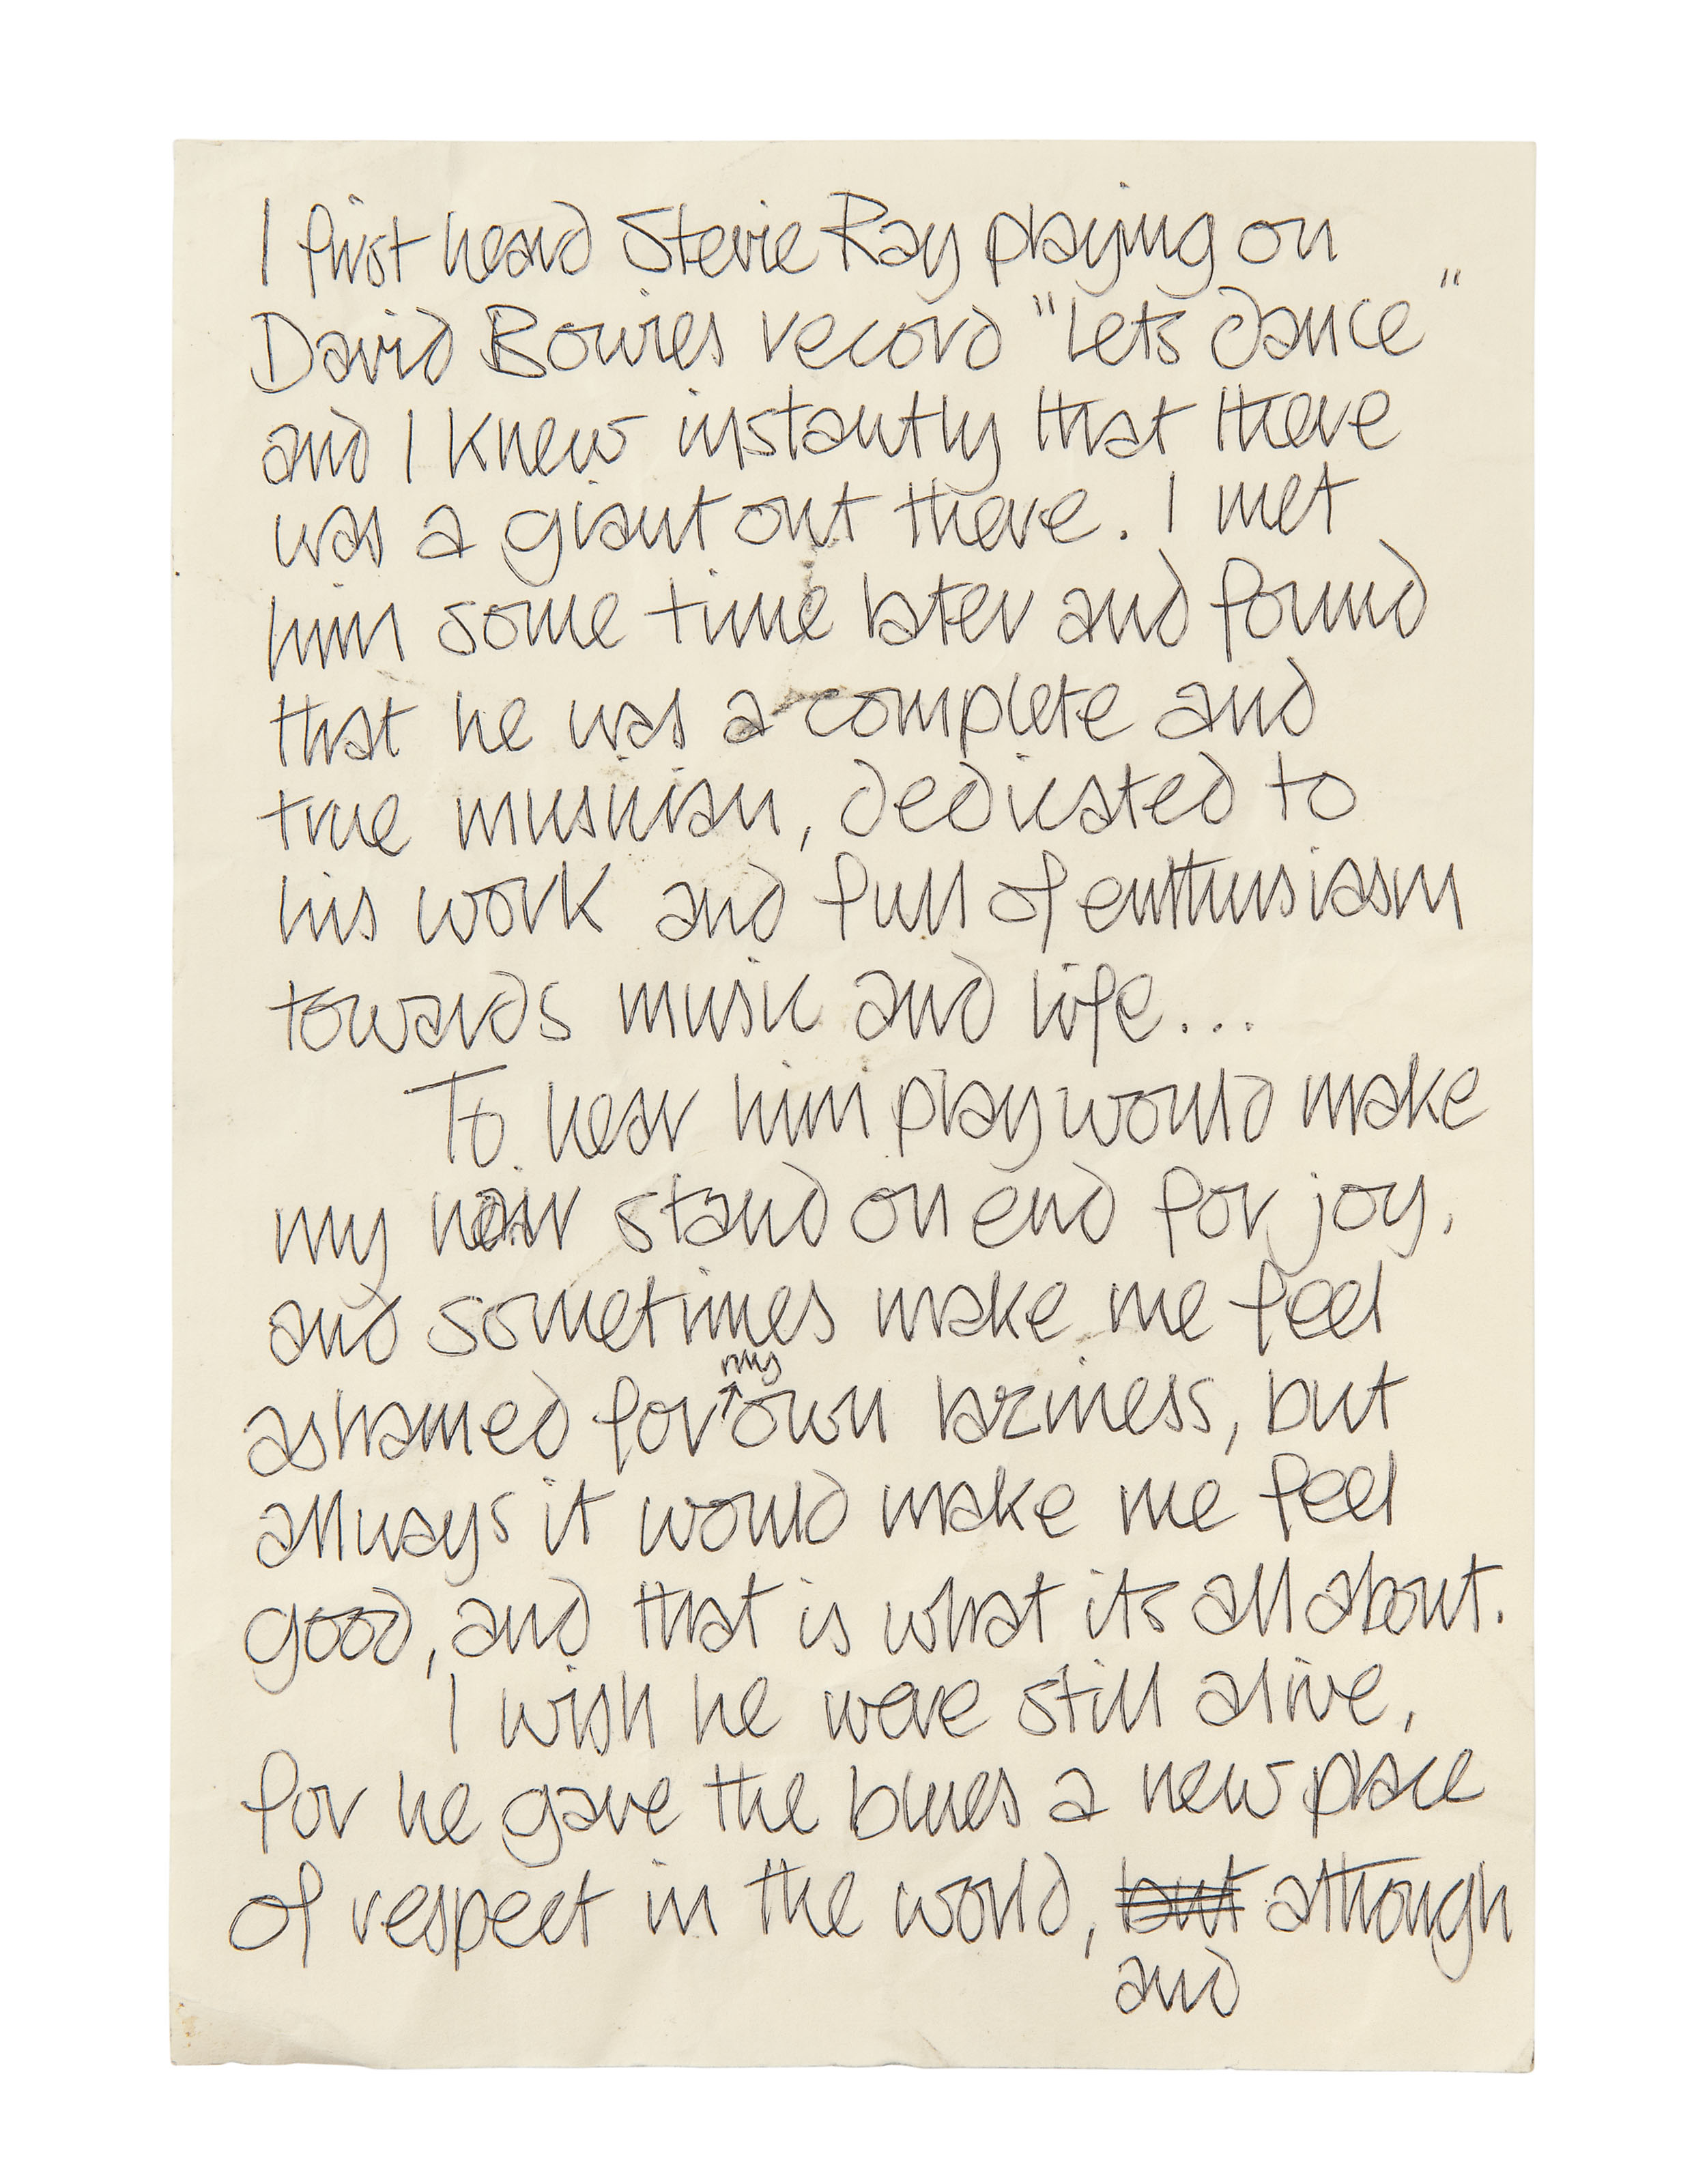 I first heard Stevie Ray playing on
David Bowies record "Lets dance"
and I knew instantly that there
was a giant out there. I met
him some time later and found
that he was a complete and
true musician, dedicated to
his work and full of enthusiasm
towards music and life...
To hear him play would make
my hair stand on end for joy,
and sometimes make me feel
my
ashamed for own laziness, but
allways it would make me feel
good, and that is what its all about.
I wish he were still alive,
for he gave the blues a new place
of respect in the world, but although
and